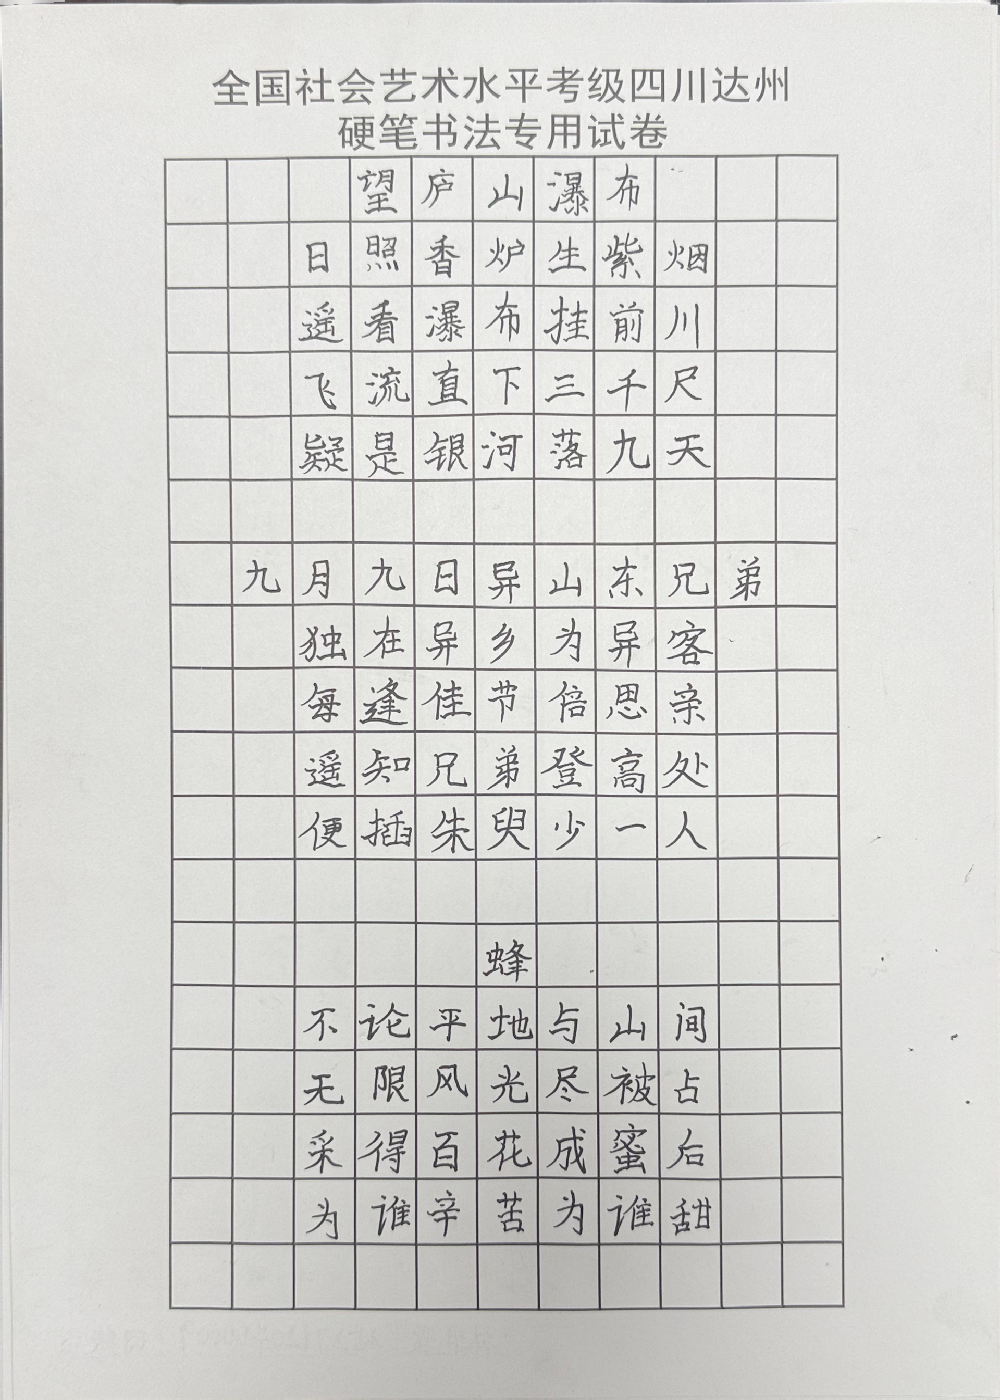 全国社会艺术水平考级四川达州
硬笔书法专用试卷
望庐山瀑布
日照香炉生紫烟
遥看瀑布挂前川
飞流直下三千尺
疑是银河落九天
九月九日异山东兄弟
独在异乡为异客
每逢佳节倍思亲
遥知兄弟登高处
便插朱臾少一人
蜂
不论平地与山间
无限风光尽被占
采得百花成蜜后
为谁辛苦为谁甜